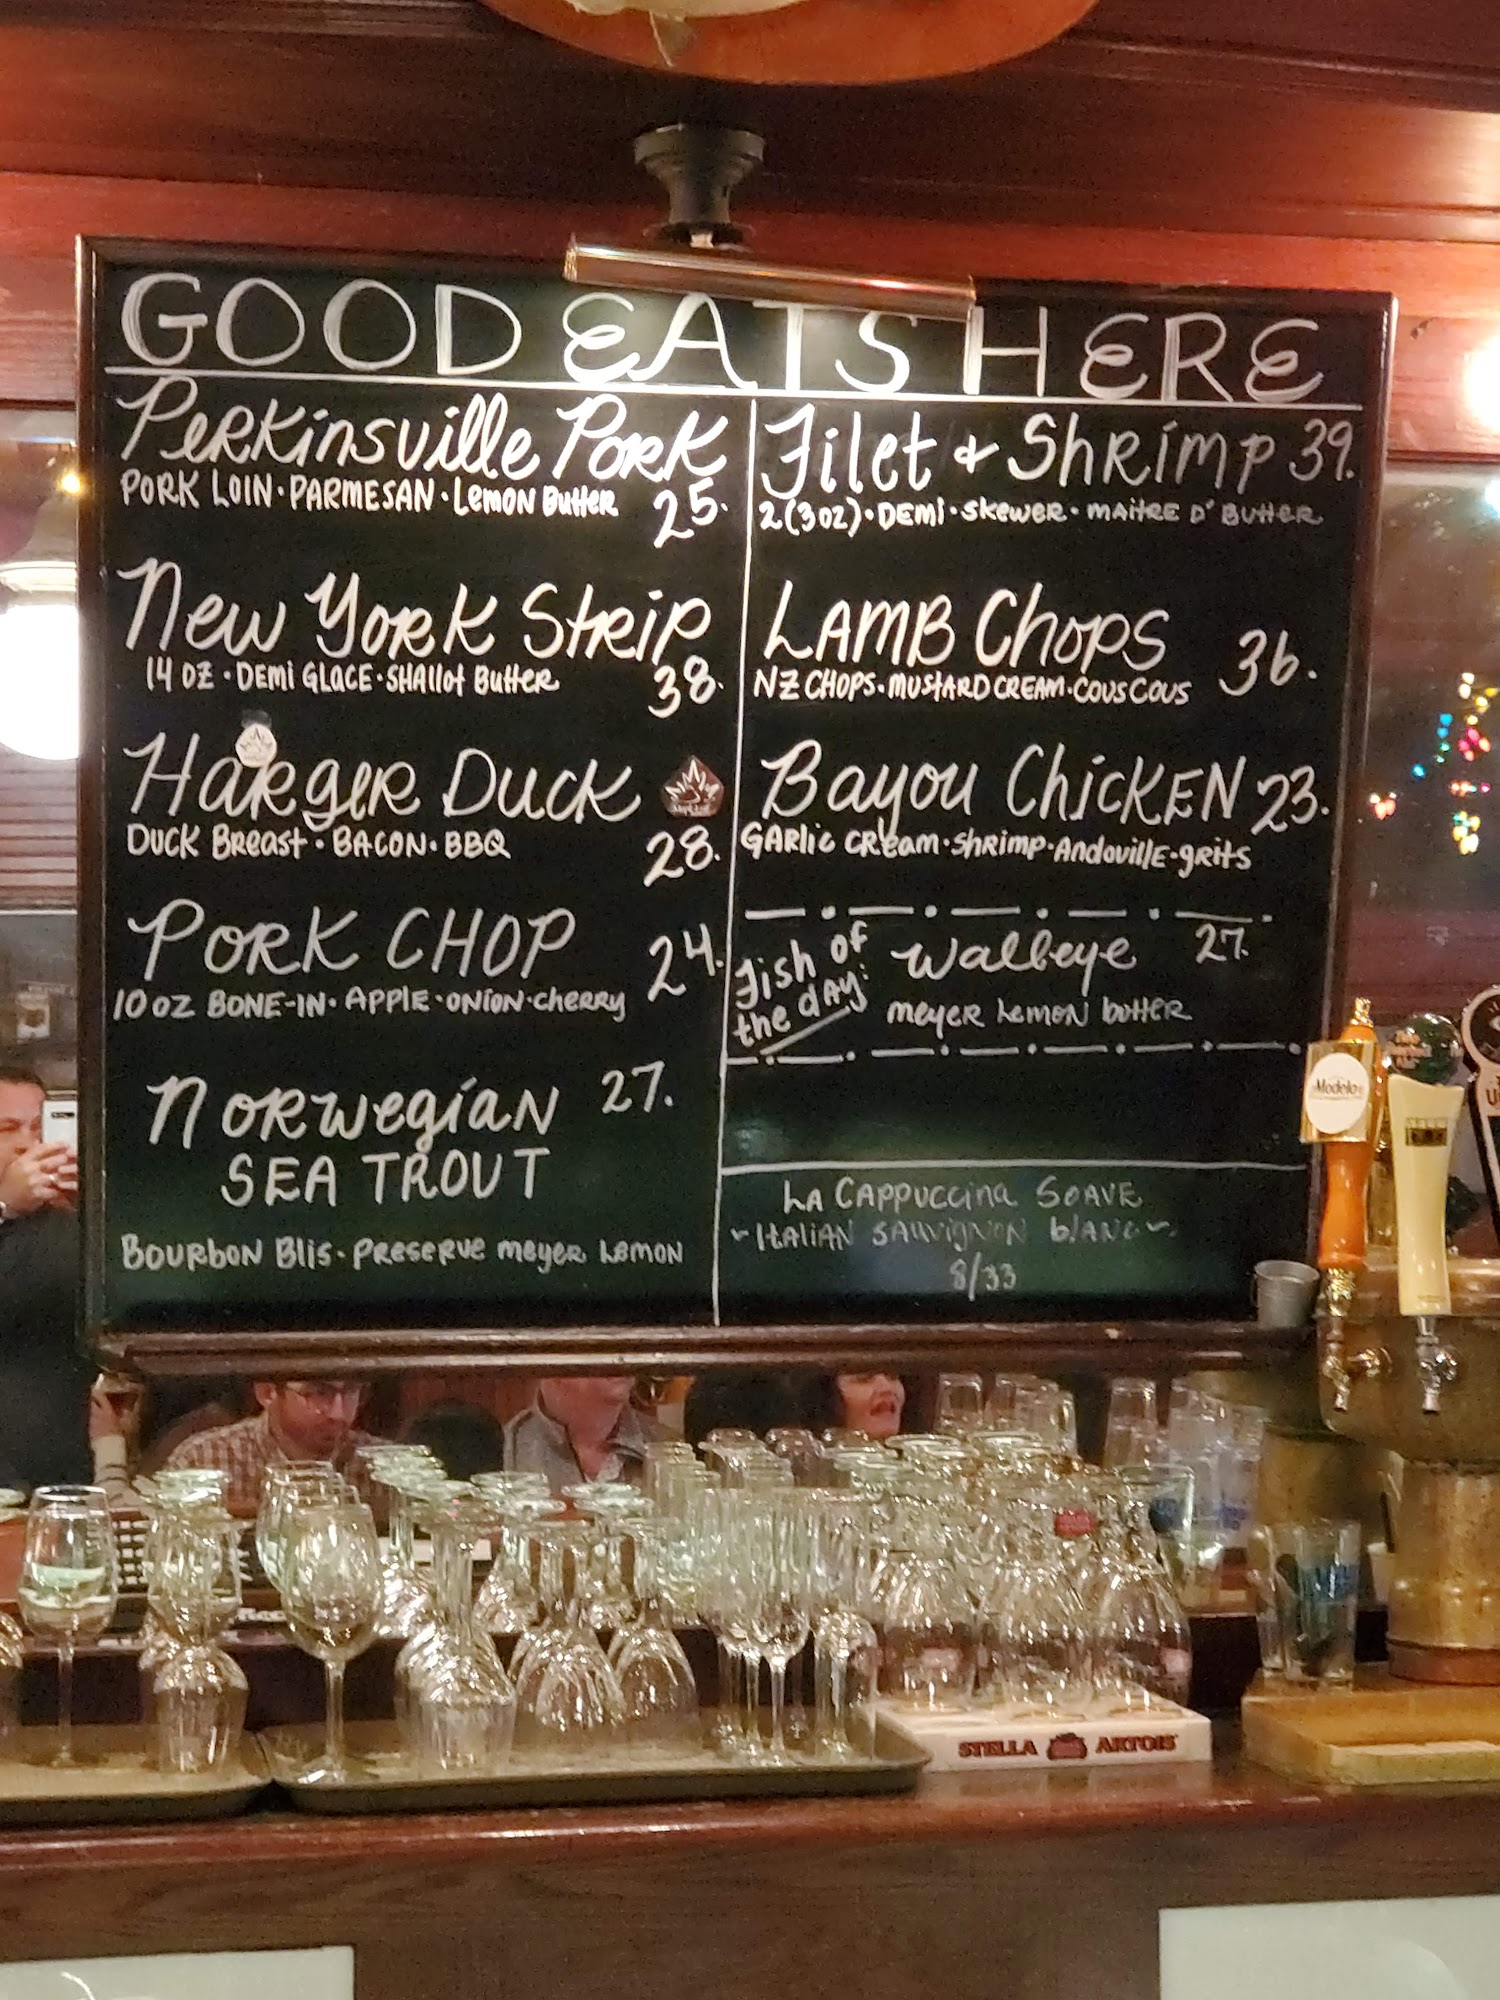 GOOD EATS HERE
Perkinsville Pork
PORK LOIN · PARMESAN · Lemon Butter 25.
New York Strip
14 OZ · DEMI GLACE · SHAllot Butter 38.
Harger Duck
DUCK Breast · BACON · BBQ 28.
PORK CHOP 24.
10 OZ BONE-IN · APPLE · ONION · cherry
NORWegian 27.
SEA TROUT
BOURBON Blis · PRESERVE meyer Lemon
Filet & Shrimp 39.
2 (3 OZ) · DEMI · Skewer · MAITRE D' BUTTER
LAMB Chops 36.
NZ CHOPS · MUSTARD CREAM · COUSCOUS
Bayou ChicKEN 23.
GARlic CREam · ShRimp · AndoVillE · gRits
Fish of the day: Walleye 27.
meyer Lemon butter
LA CAPPUCCINA SOAVE
~ ITALIAN SAUVIGNON blANC ~
8/33
Modelo
STELLA ARTOIS